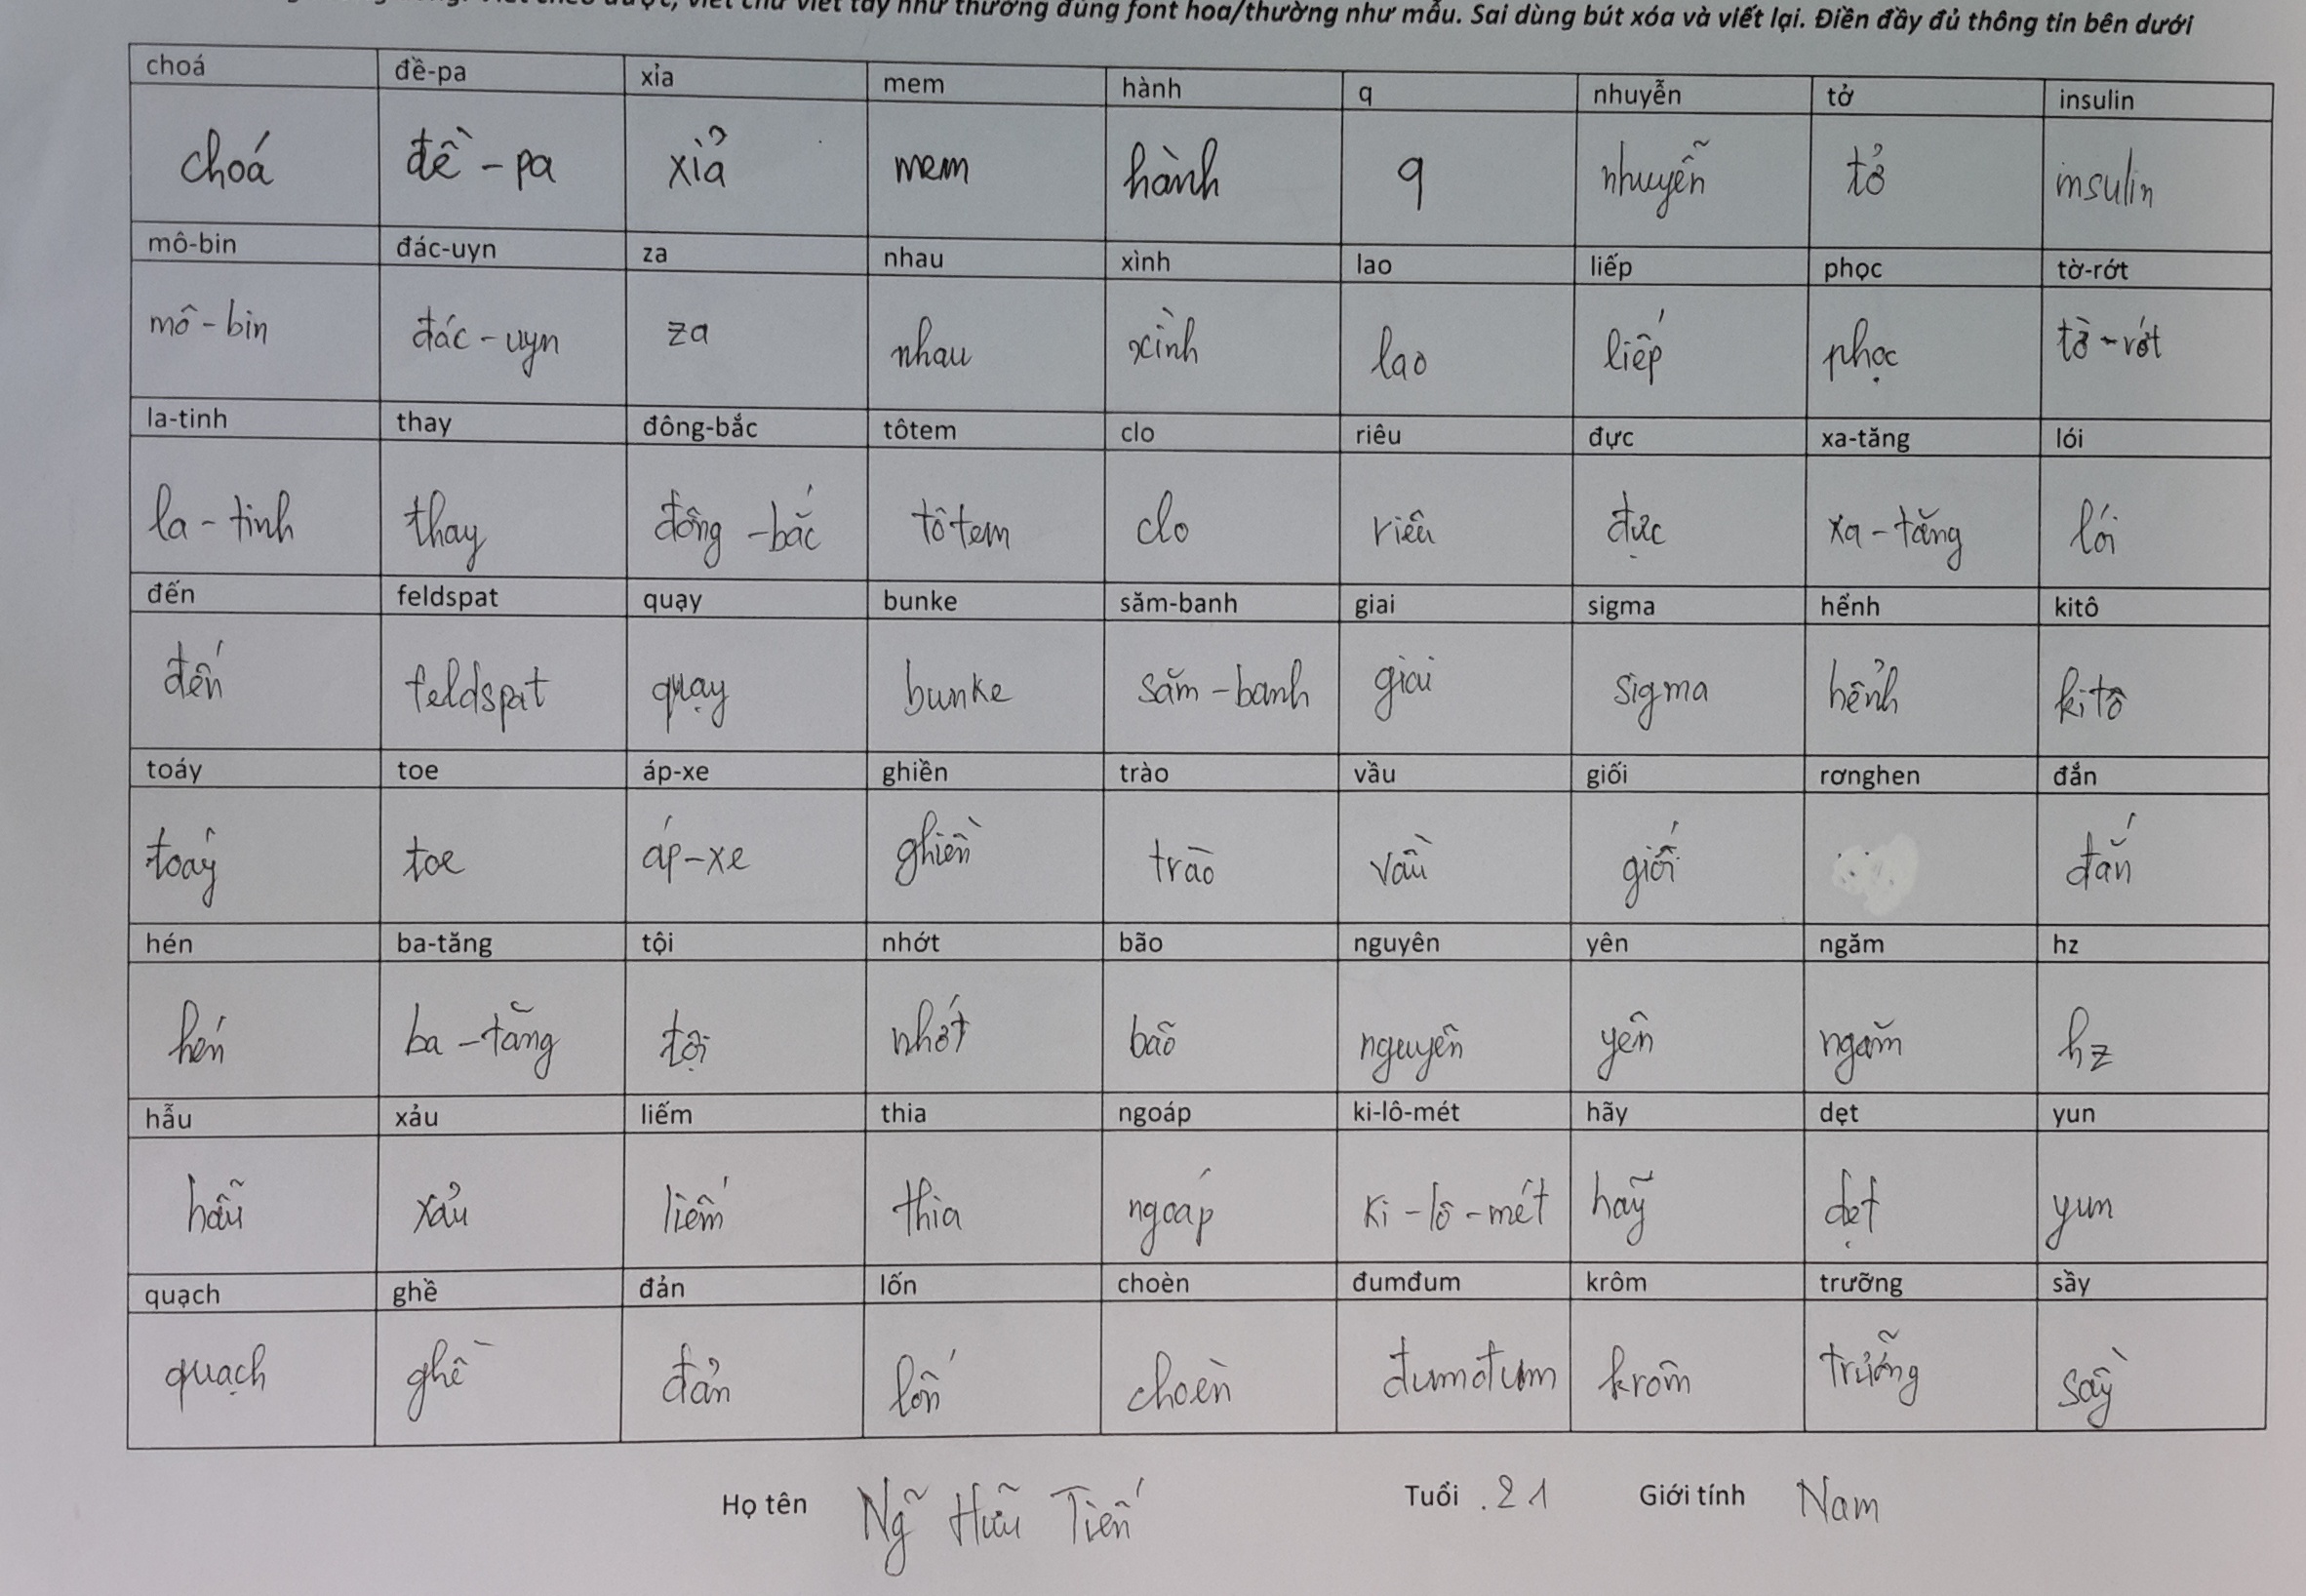 viết chữ viết tay như thường đúng font hoa/thường như mẫu. Sai dùng bút xóa và viết lại. Điền đầy đủ thông tin bên dưới
choá đề-pa xỉa mem hành q nhuyễn tở insulin
choá đề-pa xỉa mem hành q nhuyễn tở insulin
mô-bin đác-uyn za nhau xình lao liếp phọc tờ-rớt
mô-bin đác-uyn za nhau xình lao liếp phọc tờ-rớt
la-tinh thay đông-bắc tôtem clo riêu đực xa-tăng lói
la-tinh thay đông-bắc tôtem clo riêu đực xa-tăng lói
đến feldspat quạy bunke săm-banh giai sigma hểnh kitô
đến feldspat quạy bunke săm-banh giai sigma hểnh kitô
toáy toe áp-xe ghiền trào vầu giối rơnghen đắn
toáy toe áp-xe ghiền trào vầu giối đắn
hén ba-tăng tội nhớt bão nguyên yên ngăm hz
hén ba-tăng tội nhớt bão nguyên yên ngăm hz
hẫu xảu liếm thia ngoáp ki-lô-mét hãy dẹt yun
hẫu xảu liếm thia ngoáp ki-lô-mét hãy dẹt yun
quạch ghề đản lốn choèn đumđum krôm trưỡng sầy
quạch ghề đản lốn choèn đumđum krôm trưỡng sầy
Họ tên Ng̃ Hữu Tiến Tuổi 21 Giới tính Nam